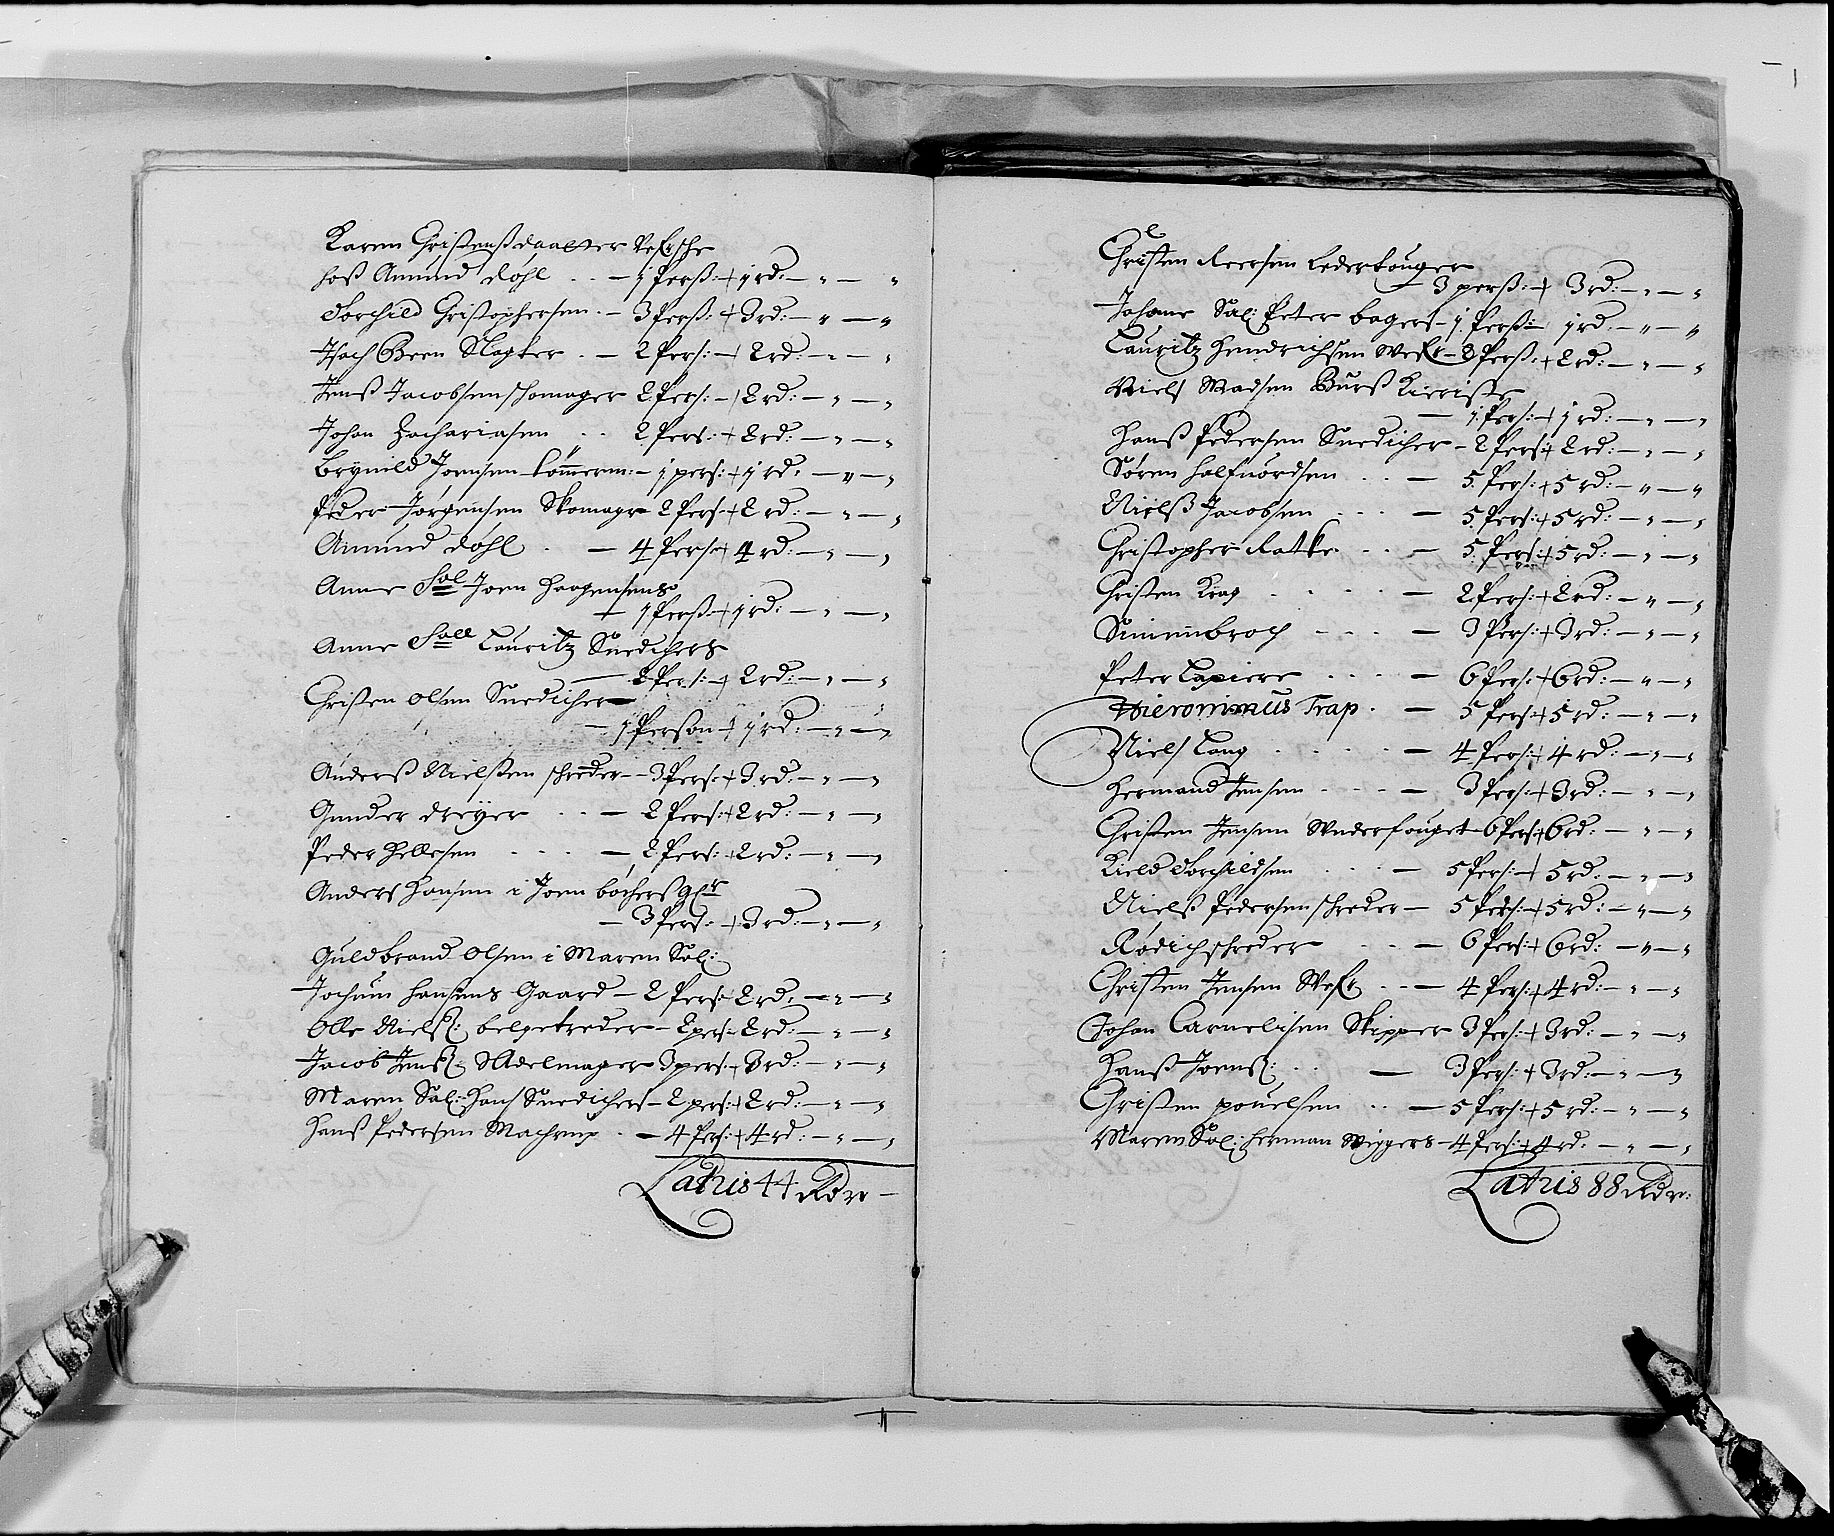 Karen Christensdaatter Vefersche
hoß Amund døhl . . — 1 Perß: + 1 rd: — " — "
Torchild Christophersen . — 3 Perß: + 3 rd: — " — "
Isach Been Slagter . — 2 Pers: — 2 rd: — " — "
Jenß Jacobsen schomager 2 Pers: — 2 rd: — " — "
Johan Zachariasen . . 2 Pers: + 2 rd: — " — "
Brynild Joensen tømmerm: — 1 pers: + 1 rd: — " — "
Peder Jørgensen Skomager 2 Pers + 2 rd: — " — "
Amund døhl . — 4 Pers + 4 rd: — " — "
Anne Sal Joen Haagensens
+ 1 Perß: + 1 rd: — " — "
Anne Sall Lauritz Snedichers
— 2 Pers: + 2 rd: — " — "
Christen Olsen Snedicher
— 1 Person + 1 rd: — " — "
Anderß Nielsen schreder — 3 Pers + 3 rd: — " — "
Gunder dreyer . . — 2 Pers: + 2 rd: — " — "
Peder Hellesen . . . — 2 Pers: + 2 rd: — " — "
Anders Hansen i Joen bøchers
— 3 Pers: + 3 rd: — " — "
Guldbrand Olsen i Maren Sal:
Jochum hansens Gaard — 2 Pers 2 rd: — " — "
Olle Nielß: belgetreder — 2 pers 2 rd: — " — "
Jacob Jenß: Sadelmager 3 pers: + 3 rd: — " — "
Maren Sal: Hans Snedichers — 2 pers: + 2 rd: — " — "
Hanß Pedersen Machrup . — 4 Pers: + 4 rd: — " — "
Latris 44 Rdr —
Christen Leersen Ledertouger
— 3 perß: + 3 rd: — " — "
Johane Sal: Peter bagers — 1 Perß: 1 rd: — " — "
Lauritz Hendrichsen Wefr — 2 Perß: + 2 rd: — " — "
Niels Madsen Burß
— 1 Pers: + 1 rd: — " — "
Hanß Pedersen Snedicher — 2 Pers + 2 rd: — " — "
Søren Halfuordsen . . — 5 Pers: + 5 rd: — " — "
Nielß Jacobsen . . . — 5 Pers: + 5 rd: — " — "
Christopher Ratke . . — 5 Pers: + 5 rd: — " — "
Christen Krag . . . . — 2 Pers: + 2 rd: — " — "
Simenbroch . . . — 3 Pers: + 3 rd: — " — "
Peter Lapiere . . . . — 6 Pers: + 6 rd: — " — "
Hieronimus Trap . — 5 Pers + 5 rd: — " — "
Niels Lang . . . . — 4 Pers: + 4 rd: — " — "
Hermand Jensen . . . — 3 Pers: + 3 rd: — " — "
Christen Jensen Vnderfouget 6 Pers + 6 rd: — " — "
Kield Torchildsen . . . — 5 Pers: + 5 rd: — " — "
Nielß Pedersen schreder — 5 Pers: + 5 rd: — " — "
Rødich schreder . . — 6 Pers: + 6 rd: — " — "
Christen Jensen Wefr . . — 4 Pers: + 4 rd: — " — "
Johan Carnelisen Skipper 3 Pers: + 3 rd: — " — "
Hanß Joenß: . . — 3 Pers: + 3 rd: — " — "
Christen pouelsen . . — 5 Pers: + 5 rd: — " — "
Maren Sal: Herman Wiggers — 4 Pers: + 4 rd: — " — "
Latris 88 Rdr: